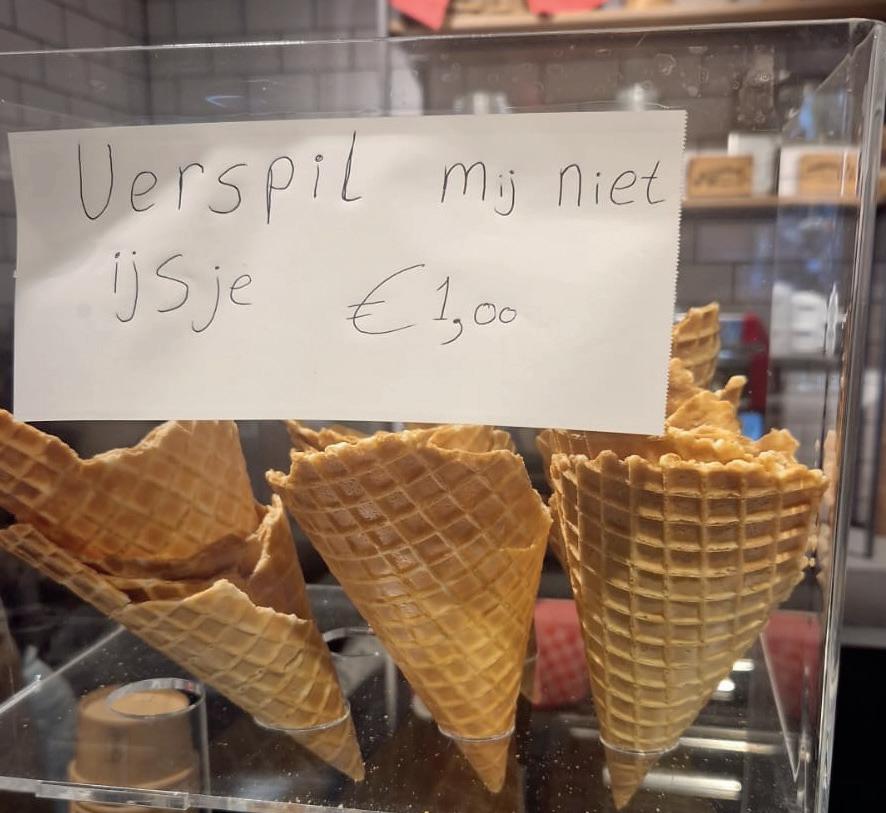 Verspil mij niet
ijsje €1,00